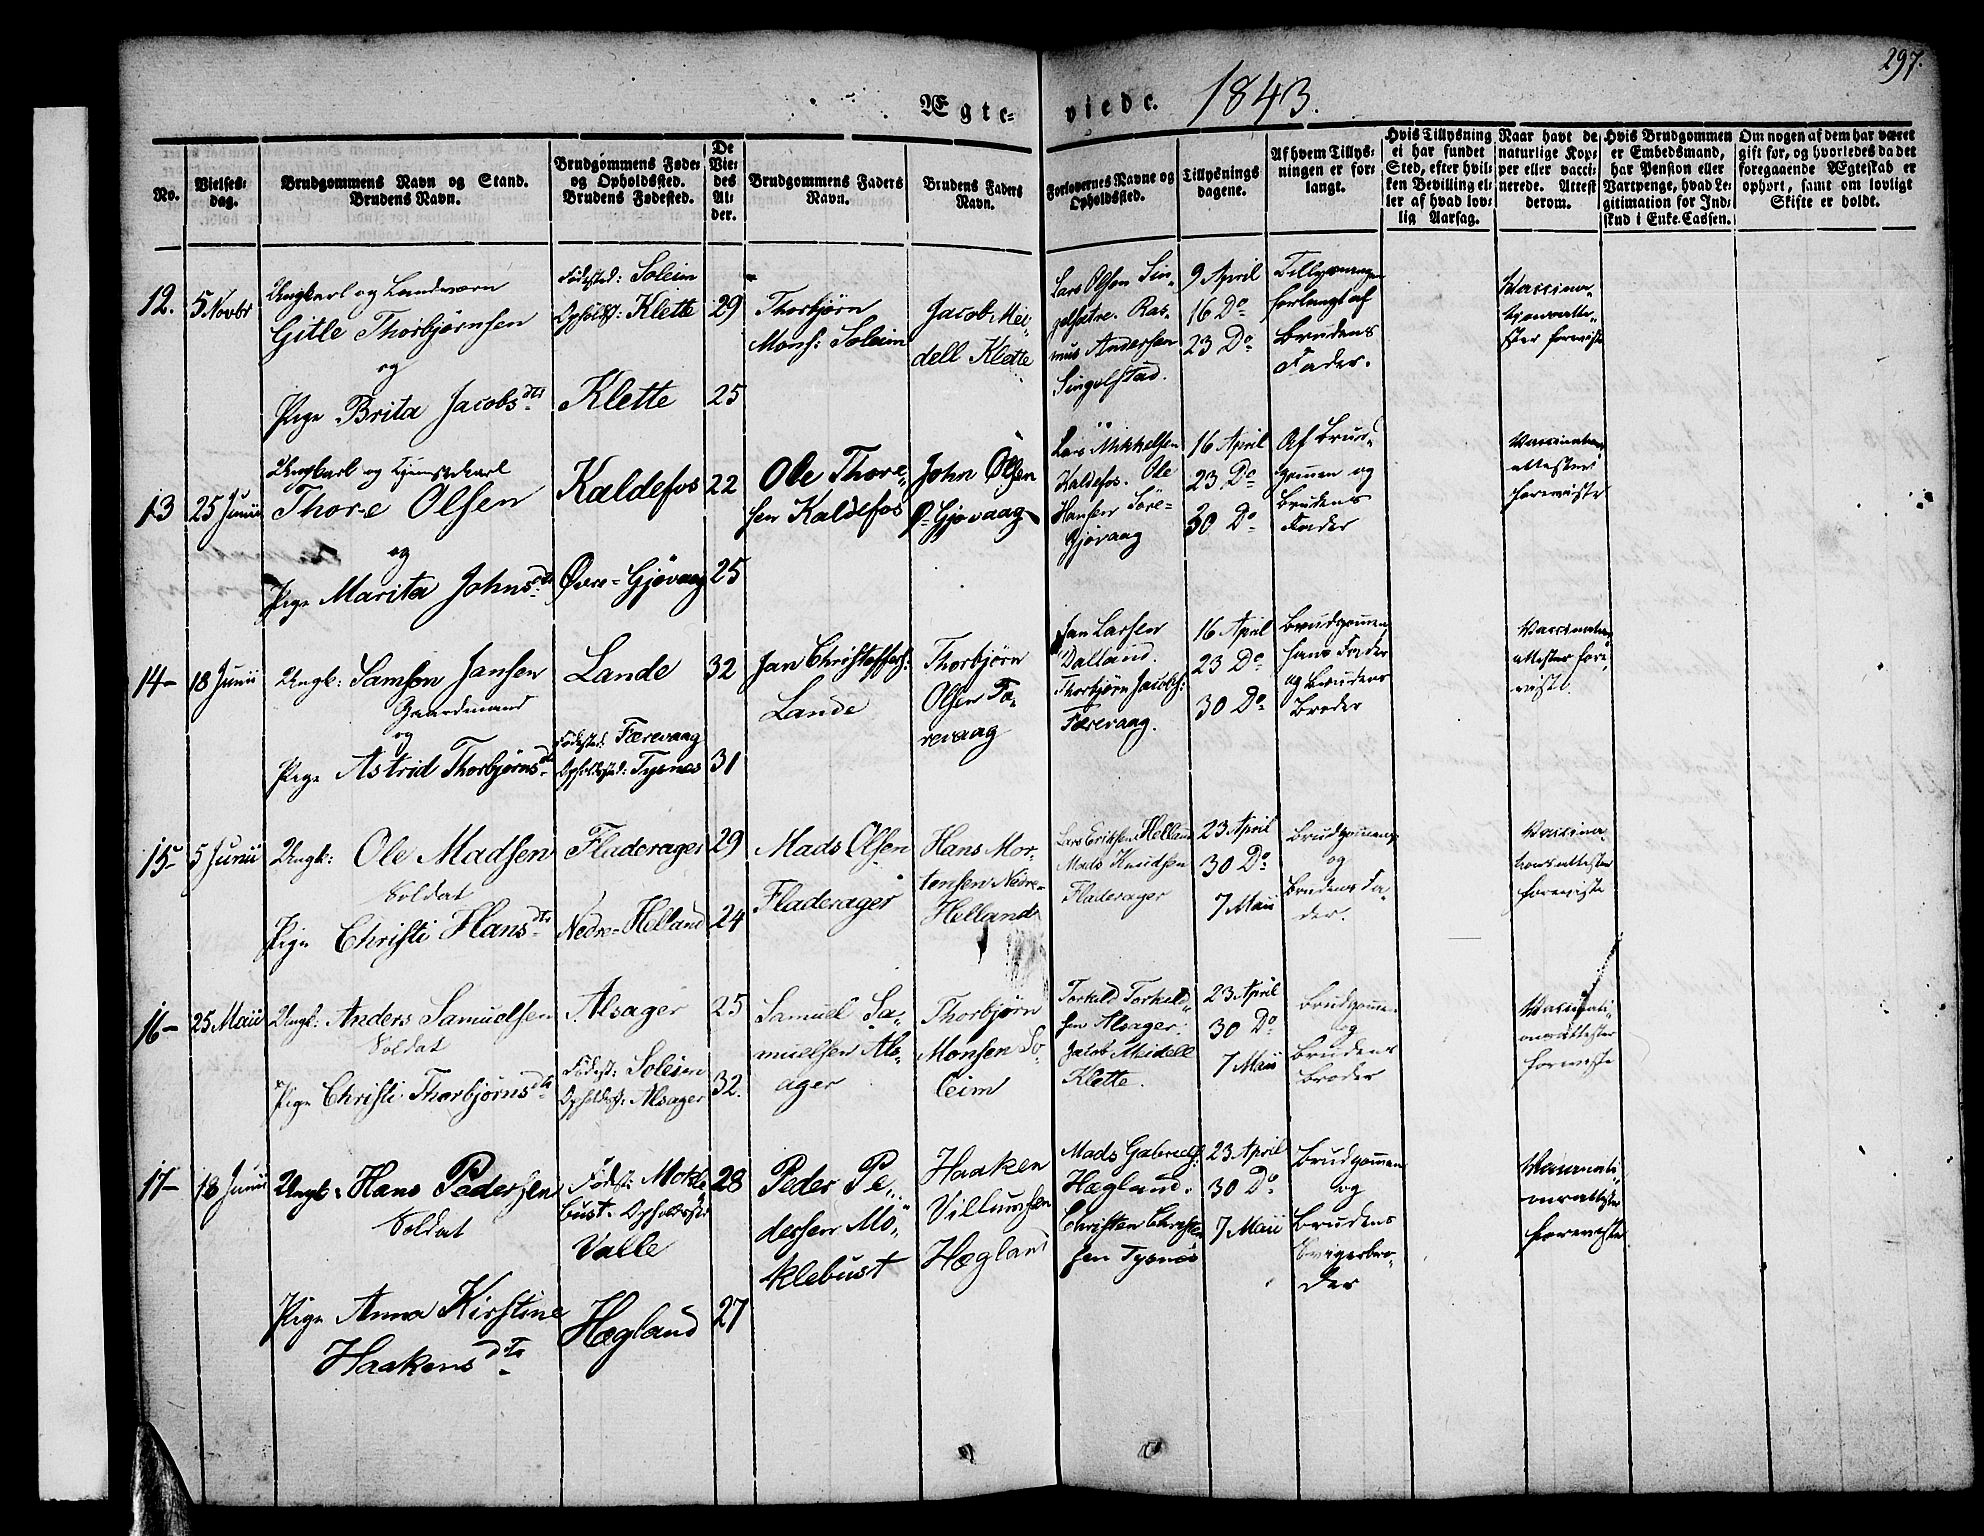 297.
Ægte-viede. 1843.
No.
Vielses-
dag.
Brudgommens Navn og Stand.
Brudens Navn.
Brudgommens Føde-
og Opholdssted.
Brudens Fødested.
De
Vie-
des
Al-
der.
Brudgommens Faders
Navn.
Brudens Faders
Navn.
Forlovernes Navne og
Opholdssted.
Tillysnings
dagene.
Af hvem Tillys-
ningen er for-
langt.
Hvis Tillysning
ei har fundet
Sted, efter hvil-
ken Bevilling el-
ler af hvad lov-
lig Aarsag.
Naar havt de
naturlige Kop-
per eller vacci-
nerede. Attest
derom.
Hvis Brudgommen
er Embedsmand,
har Pension eller
Vartpenge, hvad Le-
gitimation for Ind-
skud i Enke-Cassen.
Om nogen af dem har været
gift før, og hvorledes da det
foregaaende Ægteskab er
ophørt, samt om lovligt
Skifte er holdt.
12. 5 Novbr
Ungkarl og Landværn
Gitle Thorbjørnsen
og
Pige Brita Jacobsdtr
Fødested: Soleim
Opholdst: Klette
Klette
29
25
Thorbjørn
Mons: Soleim
Jacob Mei-
dell Klette
Lars Olsen Sin-
gelstre. Ras-
mus Andersen
Singelstad.
9 April
16 Do
23 Do
Tillysningen
forlangt af
Brudens
Fader.
Vaccina-
tionsatte-
ster foreviste
13 25 Junii
Ungkarl og Tjenestekarl
Thore Olsen
og
Pige Marita Johnsdtr
Kaldefos
Øvre-Gjøvaag
22
25
Ole Thore-
sen Kaldefos
John Olsen
Ø-Gjøvaag
Lars Mikkelsen
Kaldefos. Ole
Hansen Søre-
Gjøvaag
16 April
23 Do
30 Do
Af Brud-
gommen og
Brudens
Fader
Vaccinations
attester
foreviste
14- 18 Junii
Ungk: Samson Jansen
Gaardmand
og
Pige Astrid Thorbjørnsdtr
Lande
Fødested: Færevaag
Opholdssted: Tysnes
32
31
Jan Christoffers:
Lande
Thorbjørn
Olsen Fæ-
revaag
Jan Larsen
Dalland.
Thorbjørn Jacobs:
Færevaag.
16 April
23 Do
30 Do
Brudgommen
hans Fader
og Brudens
Broder
Vaccinations
attester fore-
viste.
15- 5 Junii
Ungk: Ole Madsen
Soldat
Pige Christi Hansdtr
Fladerager
Nedre-Helland
29
24
Mads Olsen
Fladerager
Hans Mor-
tensen Nedre-
Helland
Lars Eriksen Helland
Mads Knudsen
Fladerager
23 April
30 Do
7 Maii
Brudgommens
og
Brudens Fa-
der.
Vaccina-
tionsattester
foreviste
16- 25 Maii
Ungk: Anders Samuelsen
Soldat
Pige Christi Thorbjørnsdtr
Alsager
Fødest: Soleim
Opholdsst: Alsager
25
32.
Samuel Sa-
muelsen Als-
ager
Thorbjørn
Monsen So-
leim
Torkild Torkild-
sen Alsager.
Jacob Meidell
Klette.
23 April
30 Do
7 Maii
Brudgommen
og
Brudens
Broder
Vaccinati-
onsattester
foreviste
17- 18 Junii
Ungk: Hans Pedersen
Soldat
Pige Anna Kirstine
Haakensdtr
Fødest: Mokle-
bust. Opholdssted
Valle
Hægland
28
27
Peder Pe-
dersen Mo-
klebust
Haaken
Villumsen
Hægland
Mads Gabriels:
Hægland.
Christen Christen-
sen Tysnes
23 April
30 Do
7 Maii
Brudgommen
og
Brudens
Svigerbro-
der
Vaccinati-
onsattester
foreviste